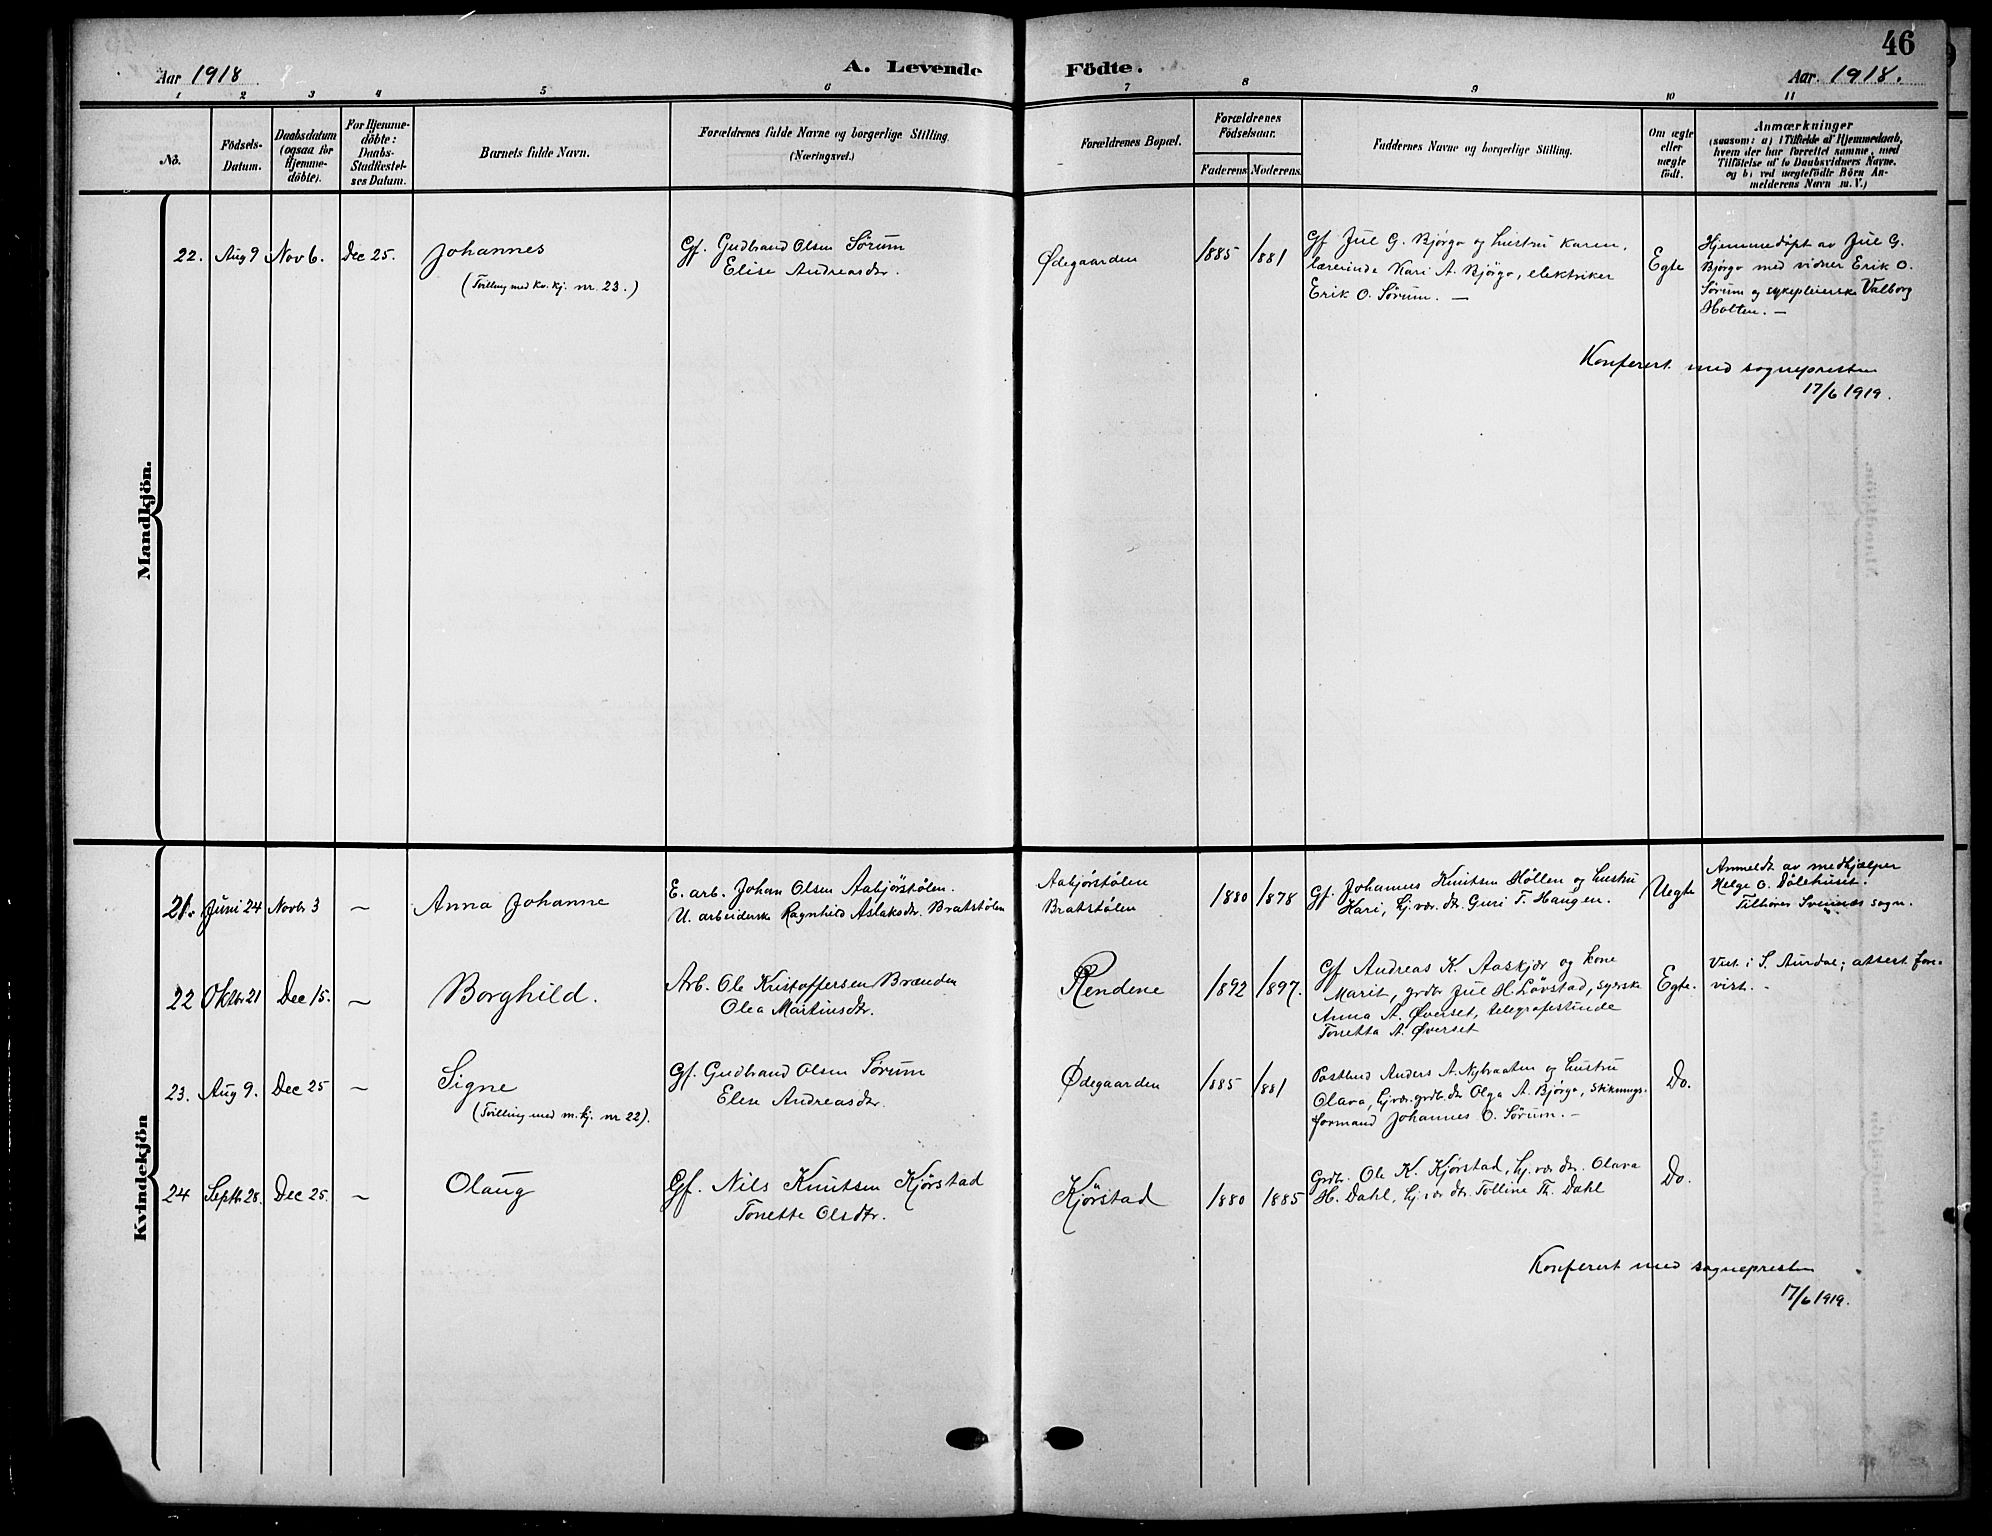 46
Aar 1918
A. Levende Födte.
Aar 1918.
1 2 3 4 5 6 7 8 9 10 11
No.
Födsels-
Datum.
Daabsdatum
(ogsaa for
Hjemme-
döbte).
For Hjemme-
döbte:
Daabs-
Stadfæstel-
ses Datum.
Barnets fulde Navn.
Forældrenes fulde Navne og borgerlige Stilling
(Næringsvei.)
Forældrenes Bopæl.
Forældrenes
Födselsaar.
Faderens. Moderens.
Faddernes Navne og borgerlige Stilling.
Om ægte
eller
uægte
födt.
Anmærkninger
(saasom: a) i Tilfælde af Hjemmedaab,
hvem der har forrettet samme, med
Tilföielse af to Daabsvidners Navne,
og b) ved uægtefödte Börn An-
melderens Navn m. V.)
Mandkjön.
22. Aug 9 Nov 6. Dec 25.
Johannes
(Tvilling med kv. kj. nr. 23.)
Gf. Gudbrand Olsen Sørum
Elise Andreasdtr.
Ødegaarden
1885 1881
Gf Jul G. Bjørgo og hustru Karen,
lærerinde Kari A. Bjørgo, elektriker
Erik O. Sørum. —
Egte
Hjemmedøpt av Jul G.
Bjørgo med vidner Erik O.
Sørum og sykepleierske Valborg
Holten. —
Konferert med sognepresten
17/6 1919.
Kvindekjön
21. Juni 24 Novbr 3 —
Anna Johanne
E. arb. Johan Olsen Aabjørstølen.
U. arbeiderske Ragnhild Aslaksdtr. Bratstølen
Aabjørstølen
Bratstølen
1880 1878
Gf. Johannes Knutsen Høllen og hustru
Kari, hj. vær. dtr. Guri T. Haugen.
Uegte
Anmeldt av medhjælper
Helge O. Dølehuset.
Tilhører Svennes sogn.
22 Oktbr 21 Dec 15. —
Borghild.
Arb. Ole Kristoffersen Brænden
Olea Martinsdtr.
Rendene
1892 1897.
Gf Andreas K. Aaskjær og kone
Marit, grdbr Jul H. Løvstad, syerske
Anna A. Øverset, telegrafistinde
Tonetta A. Øverset
Egte.
Viet i S. Aurdal; attest fore-
vist. -
23. Aug 9. Dec 25 —
Signe
(Tvilling med m. kj. nr 22).
Gf. Gudbrand Olsen Sørum
Elise Andreasdtr.
Ødegaarden
1885 1881
Postbud Anders A. Nybraaten og hustru
Olava, hj.vær. grdb.dtr Olga A. Bjørgo, stikningsformand Johannes O. Sørum. —
Do.
24 Septbr 28. Dec 25. —
Olaug
Gf. Nils Knutsen Kjørstad
Tonette Olsdtr.
Kjørstad
1880 1885
Grdbr. Ole K. Kjørstad, hj. vær dtr. Olava
H. Dahl, hj. vær dtr. Tolline Th. Dahl
Do.
Konferert med sognepresten
17/6 1919.